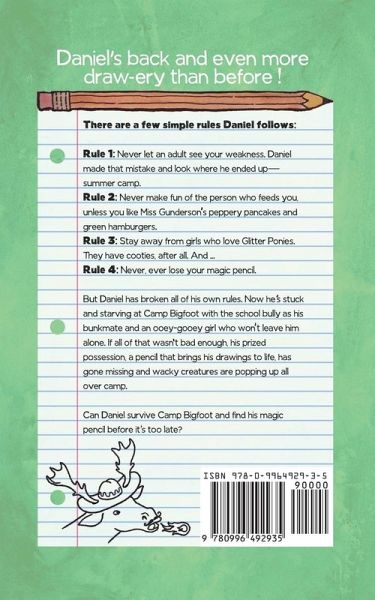 Daniel's back and even more
draw-ery than before!
There are a few simple rules Daniel follows:
Rule 1: Never let an adult see your weakness. Daniel
made that mistake and look where he ended up—
summer camp.
Rule 2: Never make fun of the person who feeds you,
unless you like Miss Gunderson's peppery pancakes and
green hamburgers.
Rule 3: Stay away from girls who love Glitter Ponies.
They have cooties, after all. And ...
Rule 4: Never, ever lose your magic pencil.
But Daniel has broken all of his own rules. Now he's stuck
and starving at Camp Bigfoot with the school bully as his
bunkmate and an ooey-gooey girl who won't leave him
alone. If all of that wasn't bad enough, his prized
possession, a pencil that brings his drawings to life, has
gone missing and wacky creatures are popping up all
over camp.
Can Daniel survive Camp Bigfoot and find his magic
pencil before it's too late?
ISBN 978-0-9964929-3-5
90000
9 780996 492935